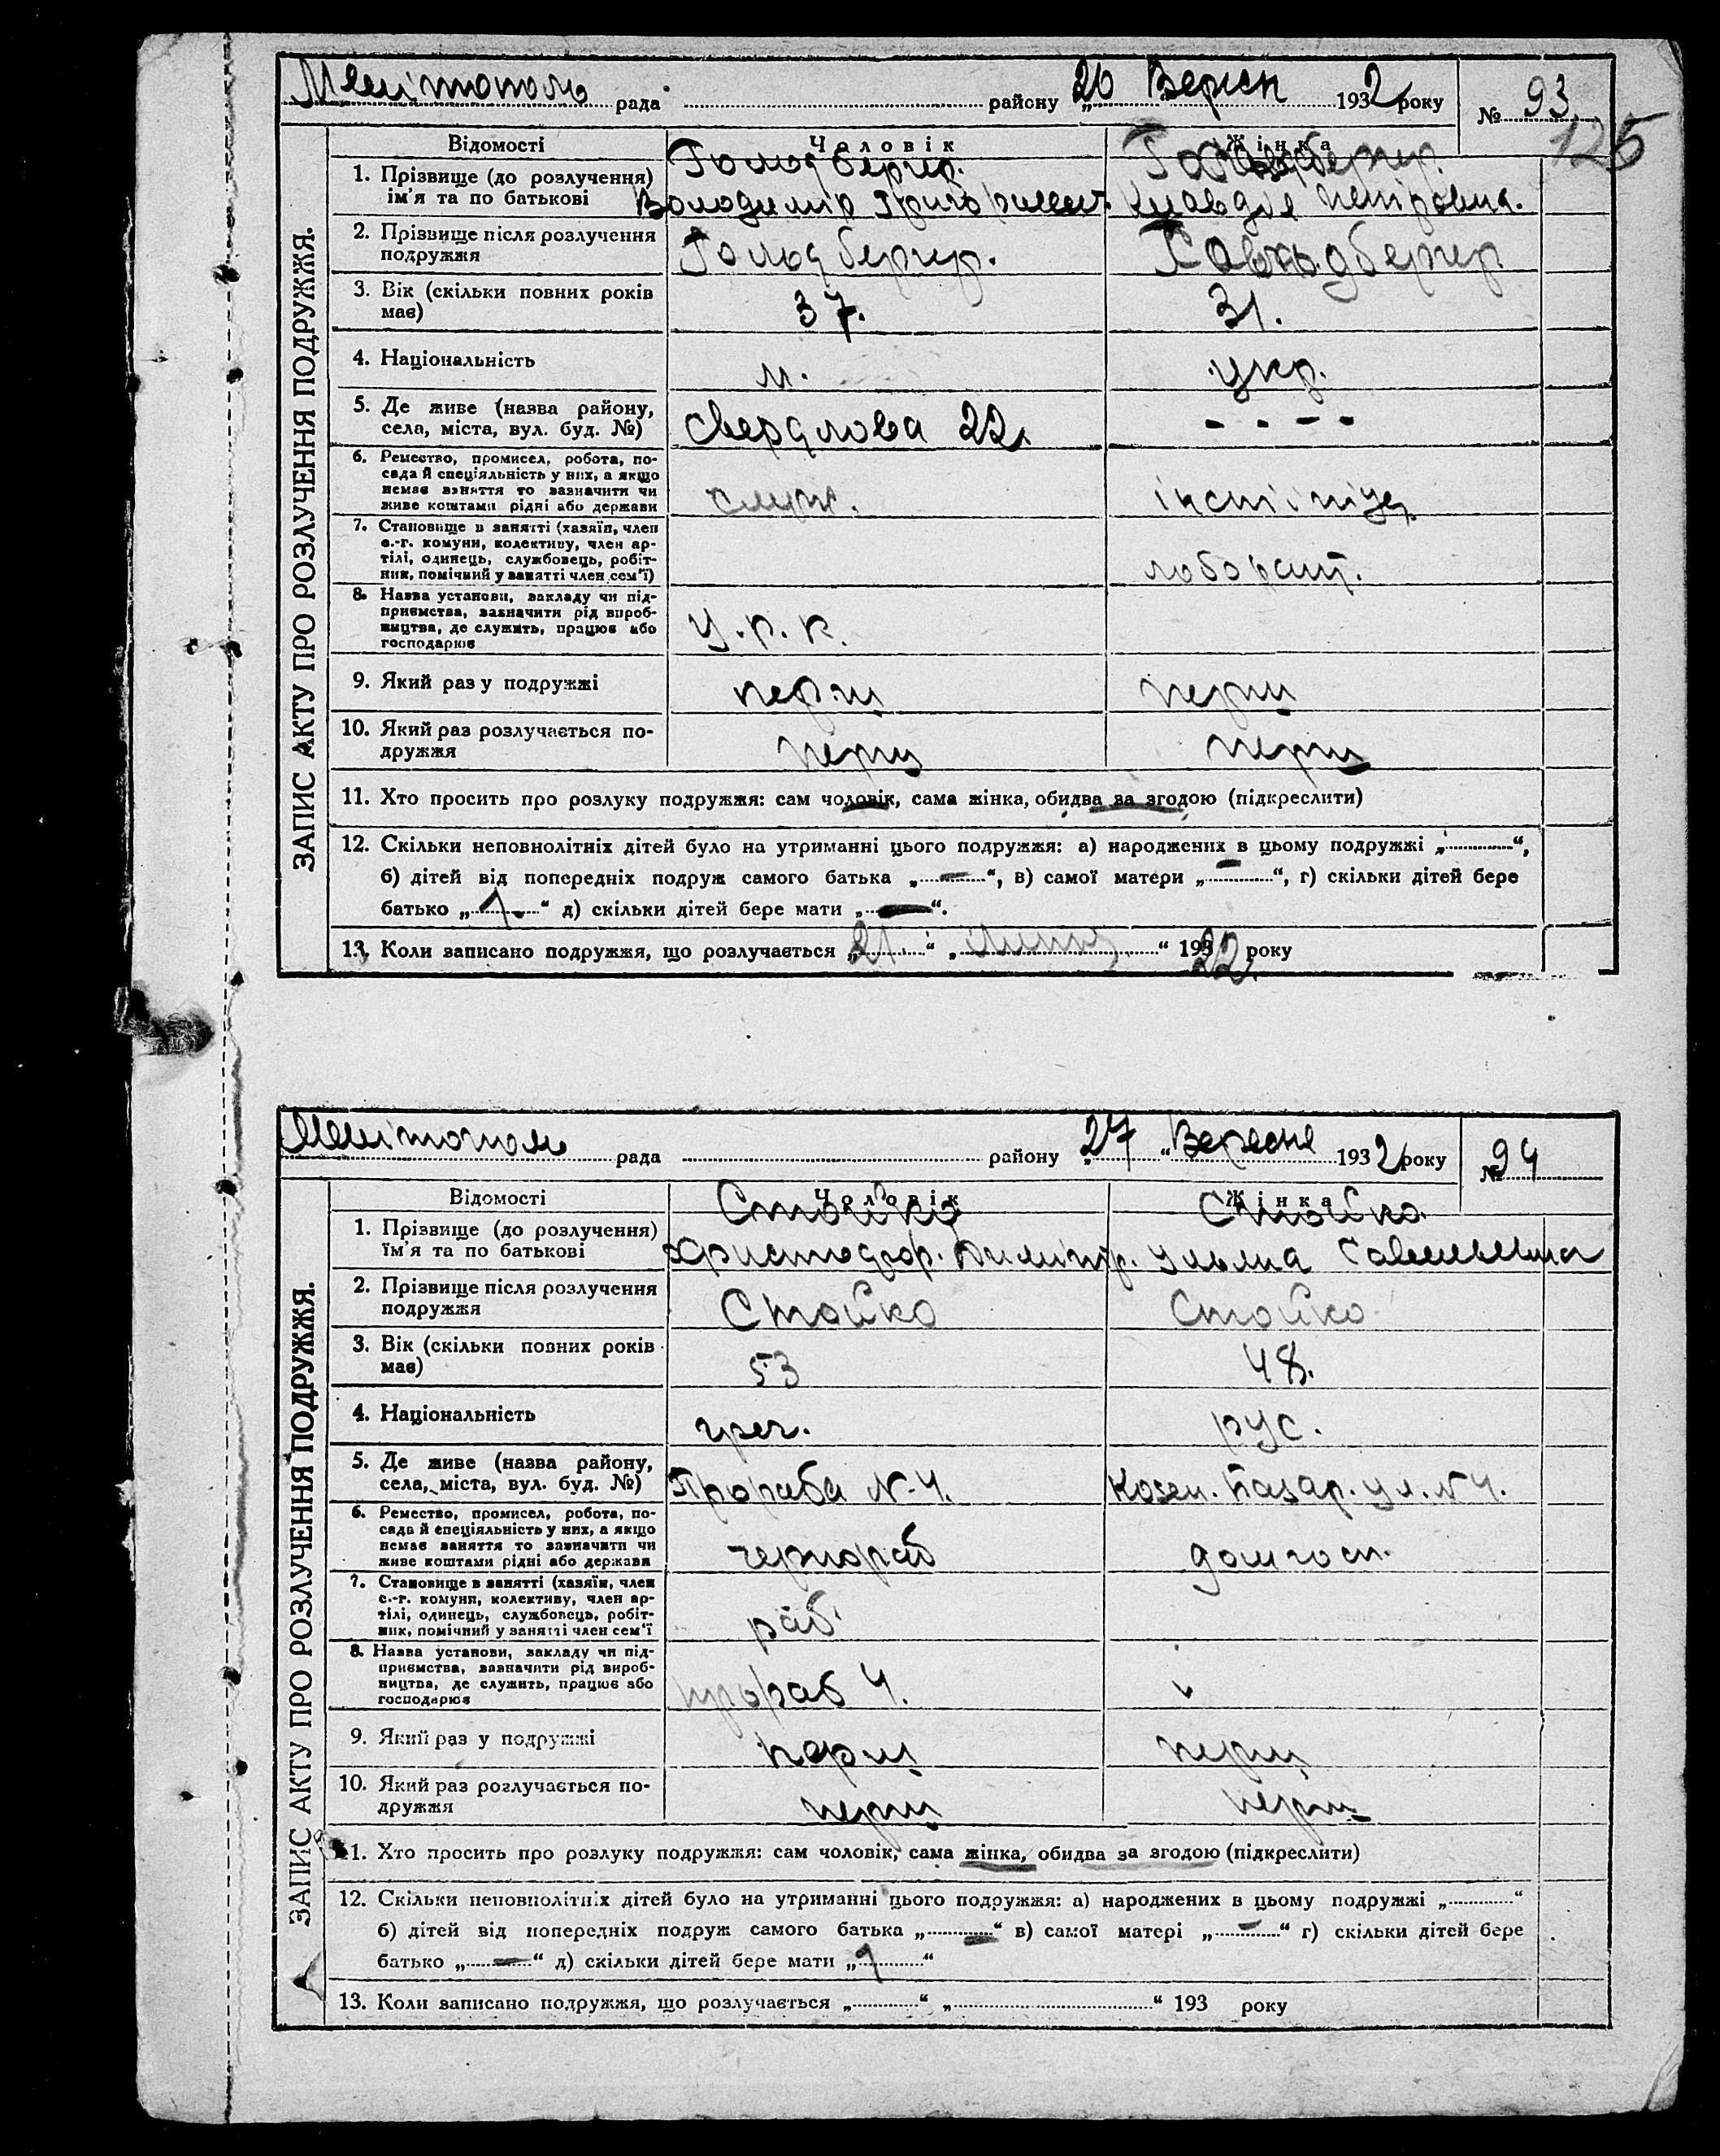 Мелітополь рада району „26 Вересн 1932 року № 93
125
ЗАПИС АКТУ ПРО РОЗЛУЧЕННЯ ПОДРУЖЖЯ.
Відомості Чоловік Жінка
1. Прізвище (до розлучення) Гольдбергер.
ім'я та по батькові Володимир Клавдія Петровна.
2. Прізвище після розлучення
подружжя Гольдбергер.
3. Вік (скільки повних років
має) 37. 31.
4. Національність н. укр.
5. Де живе (назва району,
села, міста, вул. буд. №) Свердлова 22. - - - -
6. Ремество, промисел, робота, по-
сада й спеціяльність у них, а якщо
немає заняття то зазначити чи
живе коштами рідні або держави служ.
7. Становище в занятті (хазяїн, член
с.-г. комуни, колективу, член ар-
тілі, одинець, службовець, робіт-
ник, помічний у занятті член сем'ї) лоборант.
8. Назва установи, закладу чи під-
приємства, зазначити рід вироб-
ництва, де служить, працює або
господарює У.р.к.
9. Який раз у подружжі перш перш
10. Який раз розлучається по-
дружжя перш перш
11. Хто просить про розлуку подружжя: сам чоловік, сама жінка, обидва за згодою (підкреслити)
12. Скільки неповнолітніх дітей було на утриманні цього подружжя: а) народжених в цьому подружжі „ “,
б) дітей від попередніх подруж самого батька „ — “, в) самої матери „ — “, г) скільки дітей бере
батько „ 1 “ д) скільки дітей бере мати „ — “.
13. Коли записано подружжя, що розлучається „ 21 “ „ “ 193 22 року
Мелітополь рада району „27 “ Вересня 1932 року № 94
ЗАПИС АКТУ ПРО РОЗЛУЧЕННЯ ПОДРУЖЖЯ.
Відомості Чоловік Жінка
1. Прізвище (до розлучення) Стойко Стойко
Ім'я та по батькові Христофор. Димитр. Ульяна Савельевна
2. Прізвище після розлучення
подружжя Стойко Стойко
3. Вік (скільки повних років
має) 53 48.
4. Національність греч. рус.
5. Де живе (назва району,
села, міста, вул. буд. №) Прораба N-4. Козен. Базар. ул. N 4.
6. Ремество, промисел, робота, по-
сада й спеціяльність у них, а якщо
немає заняття то зазначити чи
живе коштами рідні або держави чернораб домгосп.
7. Становище в занятті (хазяїн, член
с.-г. комуни, колективу, член ар-
тілі, одинець, службовець, робіт-
ник, помічний у занятті член сем'ї раб.
8. Назва установи, закладу чи під-
приємства, зазначити рід вироб-
ництва, де служить, працює або
господарює прораб 4.
9. Який раз у подружжі перш перш
10. Який раз розлучається по-
дружжя перш перш
11. Хто просить про розлуку подружжя: сам чоловік, сама жінка, обидва за згодою (підкреслити)
12. Скільки неповнолітніх дітей було на утриманні цього подружжя: а) народжених в цьому подружжі „ “
б) дітей від попередніх подруж самого батька „ — “ в) самої матері „ — “ г) скільки дітей бере
батько „ — “ д) скільки дітей бере мати „ 1 “
13. Коли записано подружжя, що розлучається „ “ „ “ 193 року